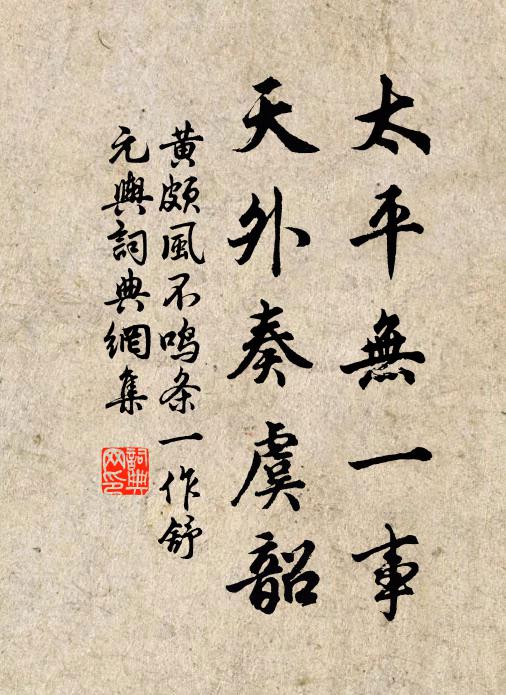 太平無一事
天外奏虞韶
黄頗風不鸣条一作舒
元輿詞典網集
詞典网印